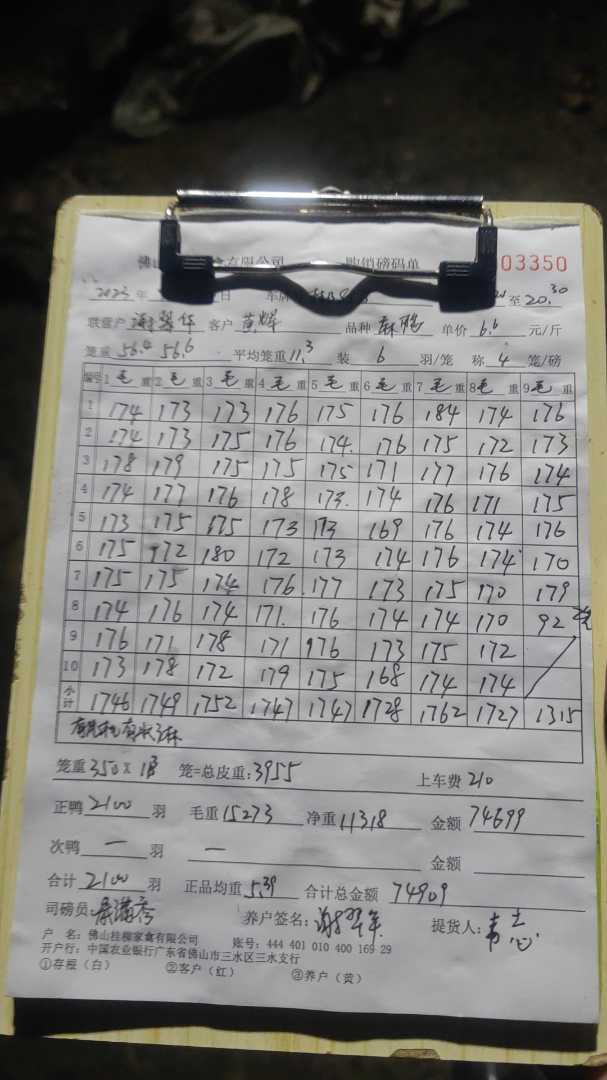 佛山 禽有限公司 购销磅码单 03350
2023 年 日 车牌 至 20.30
联营户 谢翠华 客户 黄辉 品种 麻鸭 单价 6.6 元/斤
笼重 56.4 56.6 平均笼重 11.3 装 6 羽/笼 称 4 笼/磅
编号 1 毛 重 2 毛 重 3 毛 重 4 毛 重 5 毛 重 6 毛 重 7 毛 重 8 毛 重 9 毛 重
1 174 173 173 176 175 176 184 174 176
2 174 173 175 176 174 176 175 172 173
3 178 179 175 175 175 171 177 176 174
4 174 177 176 178 173 174 176 171 175
5 173 175 175 173 173 169 176 174 176
6 175 172 180 172 173 174 176 174 170
7 175 175 174 176 177 173 175 170 179
8 174 176 174 171 176 174 174 170 92
9 176 171 178 171 176 173 175 172
10 173 178 172 179 175 168 174 174
小计 1746 1749 1752 1747 1747 1728 1762 1727 1315
笼重 350 × 11.3 笼=总皮重: 3955 上车费 210
正鸭 2100 羽 毛重 15273 净重 11318 金额 74699
次鸭 一 羽 一 金额
合计 2100 羽 正品均重 5.39 合计总金额 74909
司磅员: 养户签名: 谢翠华 提货人:
户 名: 佛山桂柳家禽有限公司 账号: 444 401 010 400 169 29
开户行: 中国农业银行广东省佛山市三水区三水支行
①存根(白) ②客户(红) ③养户(黄)